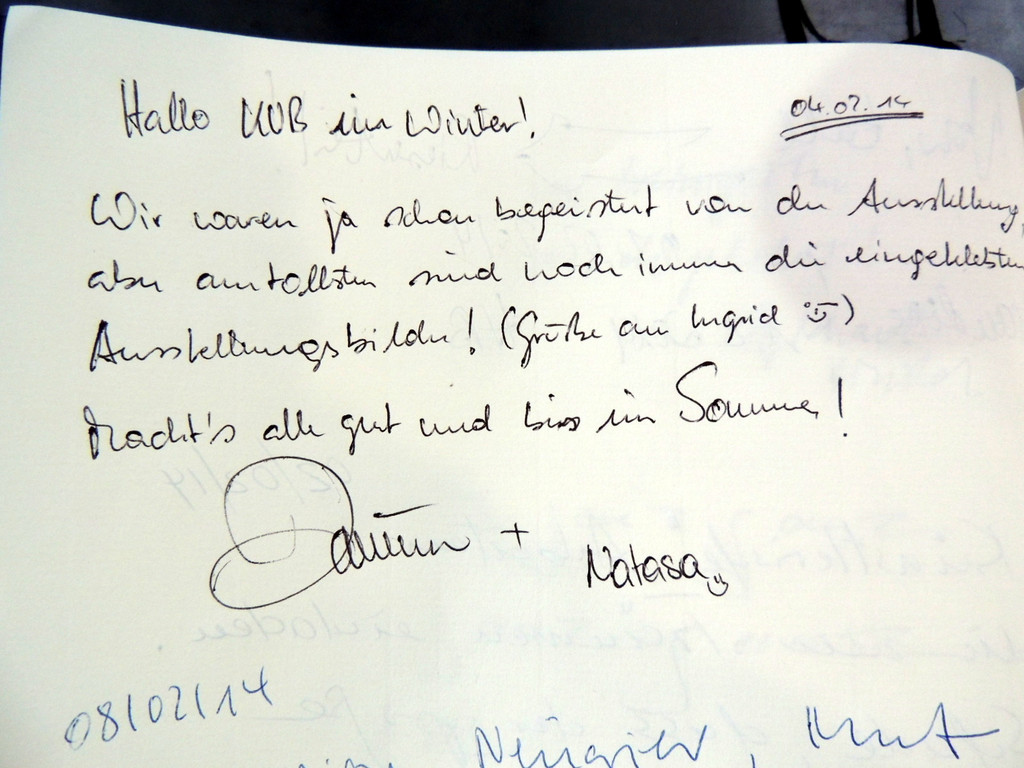 04.02.14
Hallo KUB im Winter!
Wir waren ja schon begeistert von der Ausstellung,
aber am tollsten sind noch immer die eingeklebten
Ausstellungsbilder! (Grüße an Ingrid
Macht's alle gut und bis im Sommer!
+ Natasa
08/02/14
Neugier, Kunst